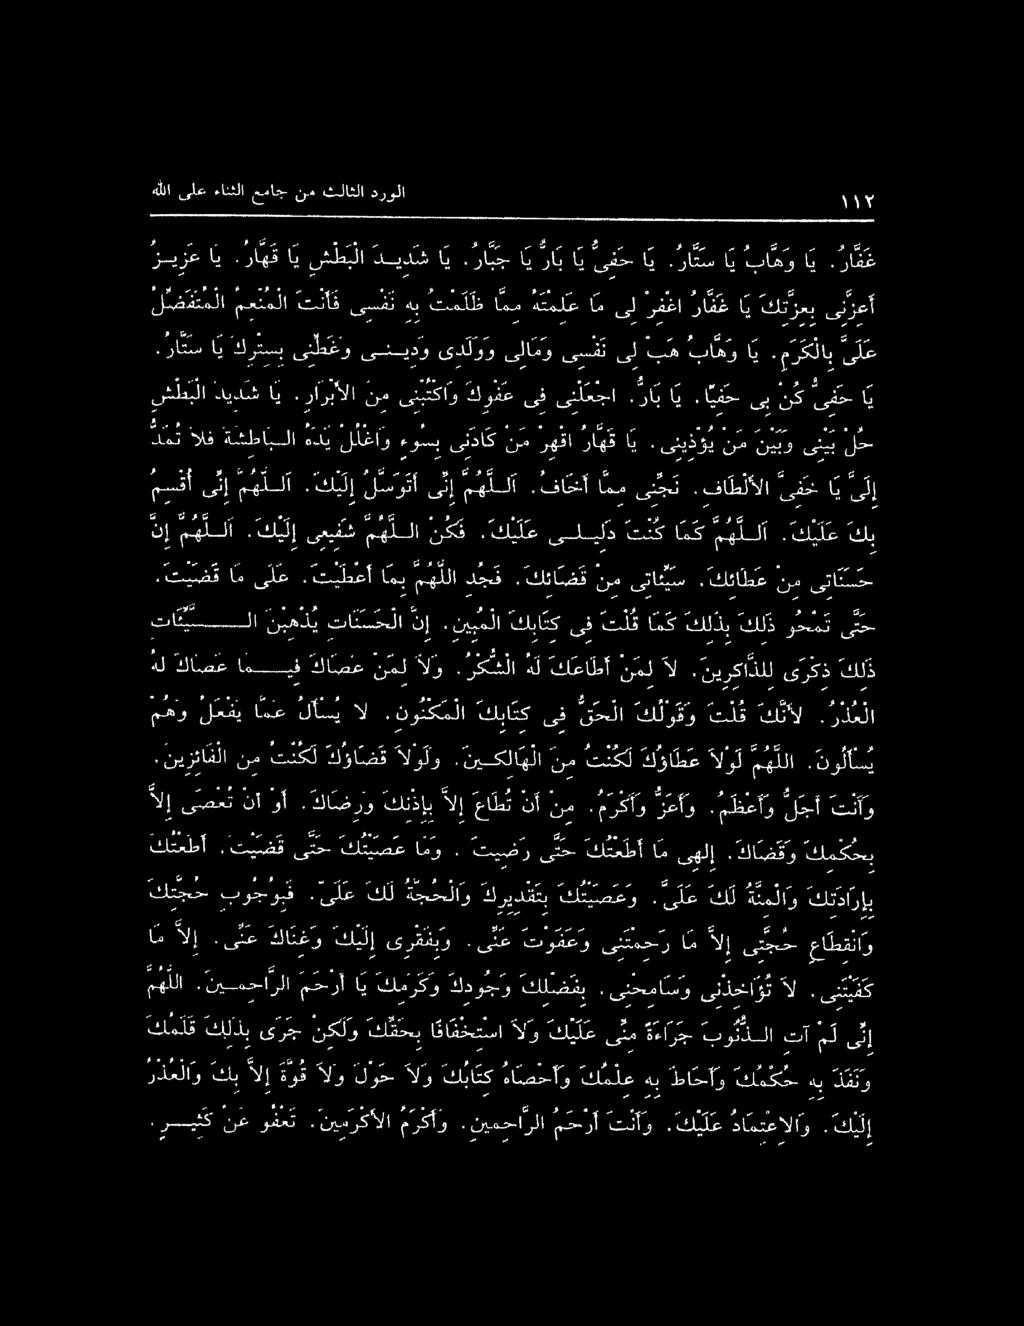 ١١٢ الورد الثالث من جامع الثناء على الله
غَفَّارُ. يَا وَهَّابُ يَا سَتَّارُ. يَا حَفِىُّ يَا بَارُّ يَا جَبَّارُ. يَا شَدِيــدَ الْبَطْشِ يَا قَهَّارُ. يَا عَزِيــزُ
أَعِزَّنِى بِعِزَّتِكَ يَا غَفَّارُ اغْفِرْ لِى مَا عَلِمْتَهُ مِمَّا ظَلَمْتُ بِهِ نَفْسِى فَأَنْتَ الْمُنْعِمُ الْمُتَفَضِّلُ
عَلَىَّ بِالْكَرَمِ. يَا وَهَّابُ هَبْ لِى نَفْسِى وَمَالِى وَوَلَدِى وَدِيـــنِـــى وَغَطِّنِى بِسِتْرِكَ يَا سَتَّارُ.
يَا حَفِىُّ كُنْ بِى حَفِيًّا. يَا بَارُّ. اجْعَلْنِى فِى عَفْوِكَ وَاكْتُبْنِى مِنَ الأَبْرَارِ. يَا شَدِيدَ الْبَطْشِ
حُلْ بَيْنِى وَبَيْنَ مَنْ يُؤْذِينِى. يَا قَهَّارُ اقْهِرْ مَنْ كَادَنِى بِسُوءٍ وَاغْلُلْ يَدَهُ الــبَاطِشَةَ فَلاَ تُمَدُّ
إِلَىَّ يَا خَفِىَّ الأَلْطَافِ. نَجِّنِى مِمَّا أَخَافُ. اَلــلَّهُمَّ إِنِّى أَتَوَسَّلُ إِلَيْكَ. اَلــلَّهُمَّ إِنِّى أُقْسِمُ
بِكَ عَلَيْكَ. اَلــلَّهُمَّ كَمَا كُنْتَ دَلِيــلِــى عَلَيْكَ. فَكُنْ الــلَّهُمَّ شَفِيعِى إِلَيْكَ. اَلــلَّهُمَّ إِنَّ
حَسَنَاتِى مِنْ عَطَائِكَ. سَيِّئَاتِى مِنْ قَضَائِكَ. فَجُدِ اللَّهُمَّ بِمَا أَعْطَيْتَ. عَلَى مَا قَضَيْتَ.
حَتَّى تَمْحُوَ ذَلِكَ بِذَلِكَ كَمَا قُلْتَ فِى كِتَابِكَ الْمُبِينِ. إِنَّ الْحَسَنَاتِ يُذْهِبْنَ الـــسَّيِّئَاتِ
ذَلِكَ ذِكْرَى لِلذَّاكِرِينَ. لاَ لِمَنْ أَطَاعَكَ لَهُ الشُّكْرُ. وَلاَ لِمَنْ عَصَاكَ فِيـــمَا عَصَاكَ لَهُ
الْعُذْرُ. لأَنَّكَ قُلْتَ وَقَوْلُكَ الْحَقُّ فِى كِتَابِكَ الْمَكْنُونِ. لا يُسْأَلُ عَمَّا يَفْعَلُ وَهُمْ
يُسْأَلُونَ. اللَّهُمَّ لَوْلاَ عَطَاؤُكَ لَكُنْتُ مِنَ الْهَالِكِــينَ. وَلَوْلاَ قَضَاؤُكَ لَكُنْتُ مِنَ الْفَائِزِينَ.
وَأَنْتَ أَجَلُّ وَأَعْظَمُ. وَأَعَزُّ وَأَكْرَمُ. مِنْ أَنْ تُطَاعَ إِلاَّ بِإِذْنِكَ وَرِضَاكَ. أَوْ أَنْ تُعْصَى إِلاَّ
بِحُكْمِكَ وَقَضَاكَ. إِلَهِى مَا أَطَعْتُكَ حَتَّى رَضِيتَ. وَمَا عَصَيْتُكَ حَتَّى قَضَيْتَ. أَطَعْتُكَ
بِإِرَادَتِكَ وَالْمِنَّةُ لَكَ عَلَىَّ. وَعَصَيْتُكَ بِتَقْدِيرِكَ وَالْحُجَّةُ لَكَ عَلَىَّ. فَبِوُجُوبِ حُجَّتِكَ
وَانْقِطَاعِ حُجَّتِى إِلاَّ مَا رَحِمْتَنِى وَعَفَوْتَ عَنِّى. وَبِفَقْرِى إِلَيْكَ وَغِنَاكَ عَنِّى. إِلاَّ مَا
كَفَيْتَنِى. لاَ تُؤَاخِذْنِى وَسَامِحْنِى. بِفَضْلِكَ وَجُودِكَ وَكَرَمِكَ يَا أَرْحَمَ الرَّاحِمِــينَ. اللَّهُمَّ
إِنِّى لَمْ آتِ الــذُّنُوبَ جَرَاءَةً مِنِّى عَلَيْكَ وَلاَ اسْتِخْفَافًا بِحَقِّكَ وَلَكِنْ جَرَى بِذَلِكَ قَلَمُكَ
وَنَفَذَ بِهِ حُكْمُكَ وَأَحَاطَ بِهِ عِلْمُكَ وَأَحْصَاهُ كِتَابُكَ وَلاَ حَوْلَ وَلاَ قُوَّةَ إِلاَّ بِكَ وَالْعُذْرُ
إِلَيْكَ. وَالاِعْتِمَادُ عَلَيْكَ. وَأَنْتَ أَرْحَمُ الرَّاحِمِينِ. وَأَكْرَمُ الأَكْرَمِينَ. تَعْفُو عَنْ كَثِيـــرٍ.